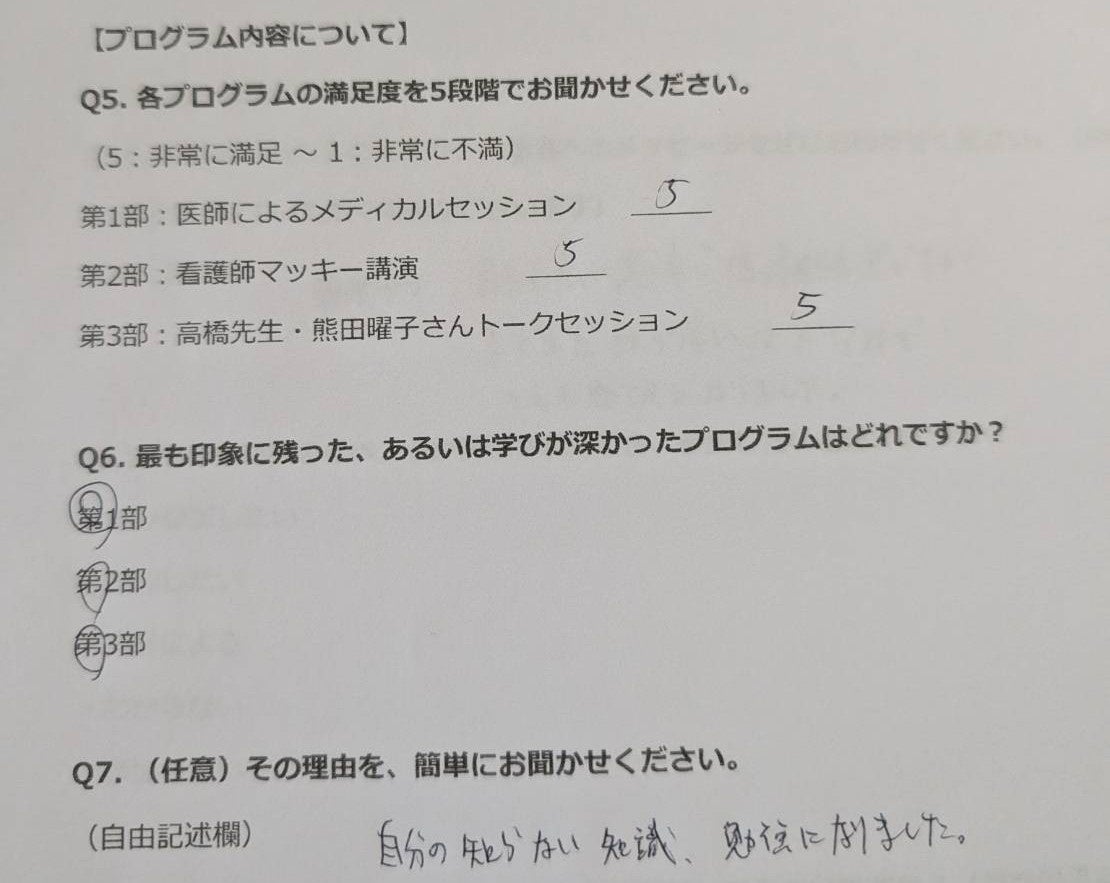 【プログラム内容について】
Q5. 各プログラムの満足度を5段階でお聞かせください。
（5：非常に満足 ～ 1：非常に不満）
第1部：医師によるメディカルセッション 5
第2部：看護師マッキー講演 5
第3部：高橋先生・熊田曜子さんトークセッション 5
Q6. 最も印象に残った、あるいは学びが深かったプログラムはどれですか？
第1部
第2部
第3部
Q7. （任意）その理由を、簡単にお聞かせください。
（自由記述欄） 自分の知らない知識、勉強になりました。